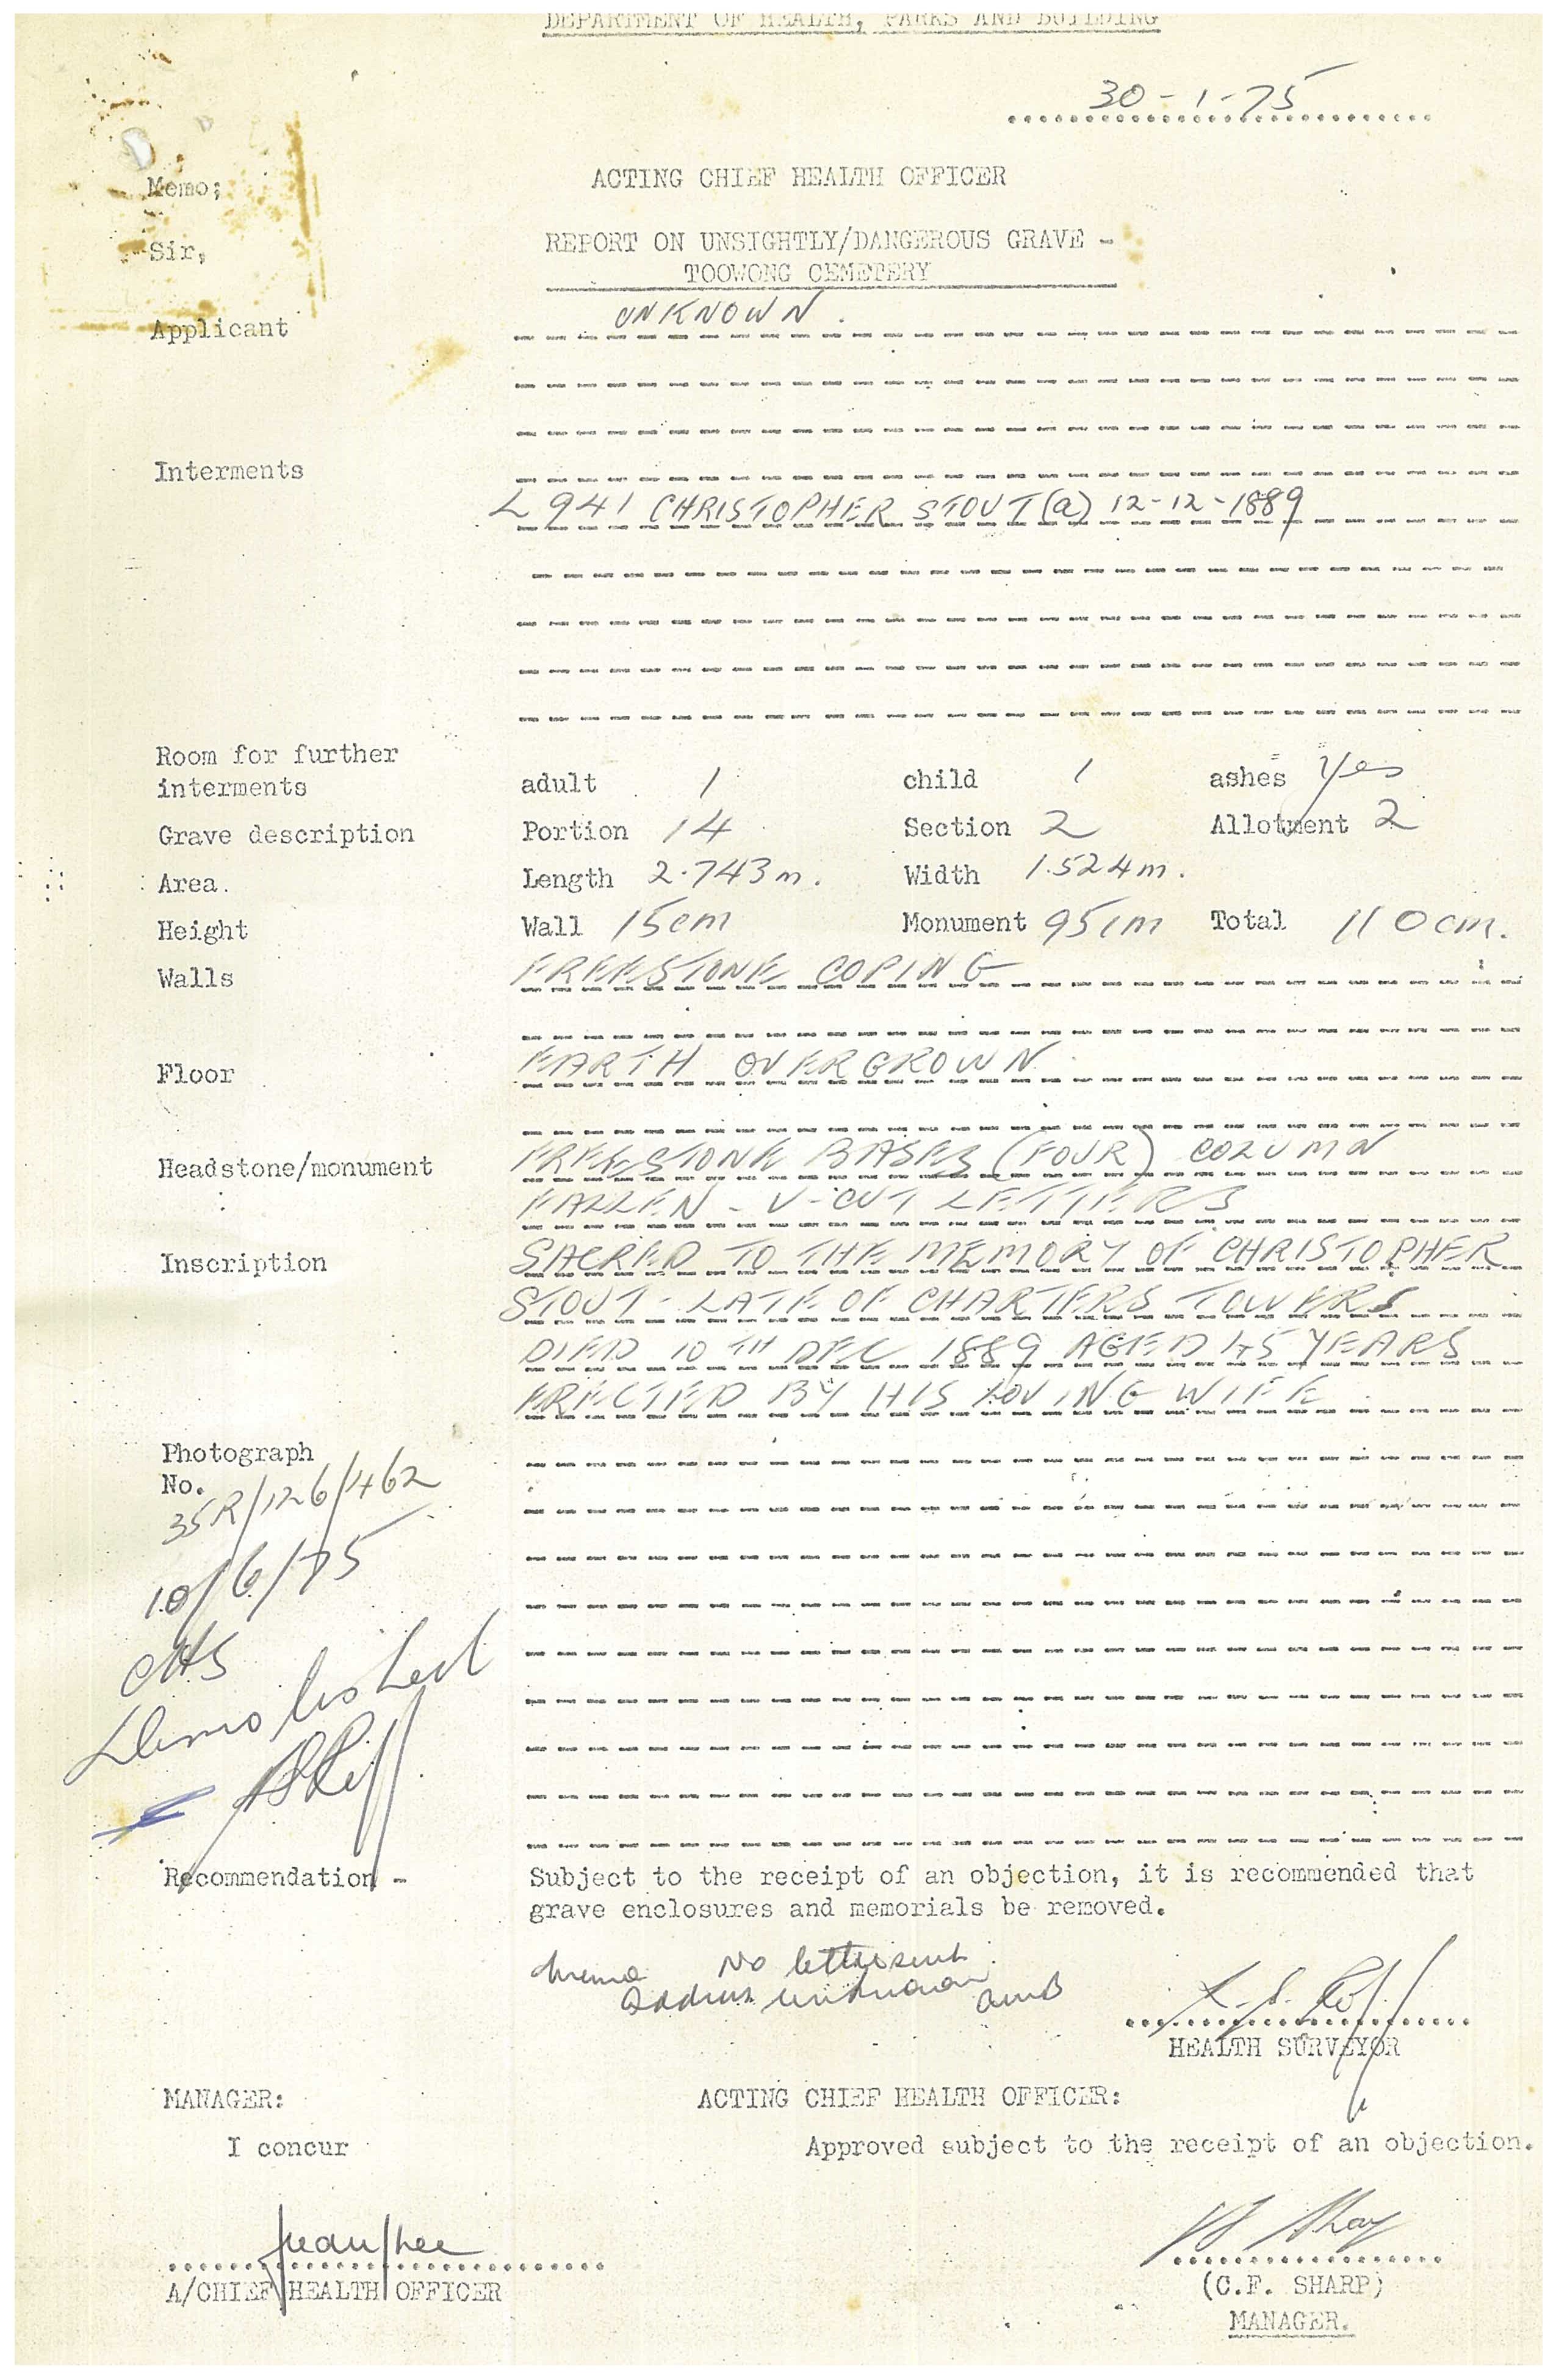 DEPARTMENT OF HEALTH, PARKS AND BUILDING
30-1-75
ACTING CHIEF HEALTH OFFICER
Memo;
Sir,
REPORT ON UNSIGHTLY/DANGEROUS GRAVE -
TOOWONG CEMETERY
Applicant UNKNOWN.
Interments
L 941 CHRISTOPHER STOUT (a) 12-12-1889
Room for further
interments adult 1 child 1 ashes Yes
Grave description Portion 14 Section 2 Allotment 2
Area. Length 2.743m. Width 1.524m.
Height Wall 15cm Monument 95cm Total 110cm.
Walls FREESTONE COPING
Floor EARTH OVERGROWN
Headstone/monument FREESTONE BASES (FOUR) COLUMN
FALLEN - V-CUT LETTERS
Inscription SACRED TO THE MEMORY OF CHRISTOPHER
STOUT - LATE OF CHARTERS TOWERS
DIED 10TH DEC 1889 AGED 45 YEARS
ERECTED BY HIS LOVING WIFE
Photograph
No.
35R/126/462
10/6/75
Demolished
Recommendation - Subject to the receipt of an objection, it is recommended that
grave enclosures and memorials be removed.
No letter sent
address unknown
HEALTH SURVEYOR
MANAGER: ACTING CHIEF HEALTH OFFICER:
I concur Approved subject to the receipt of an objection.
A/CHIEF HEALTH OFFICER (C.F. SHARP)
MANAGER.